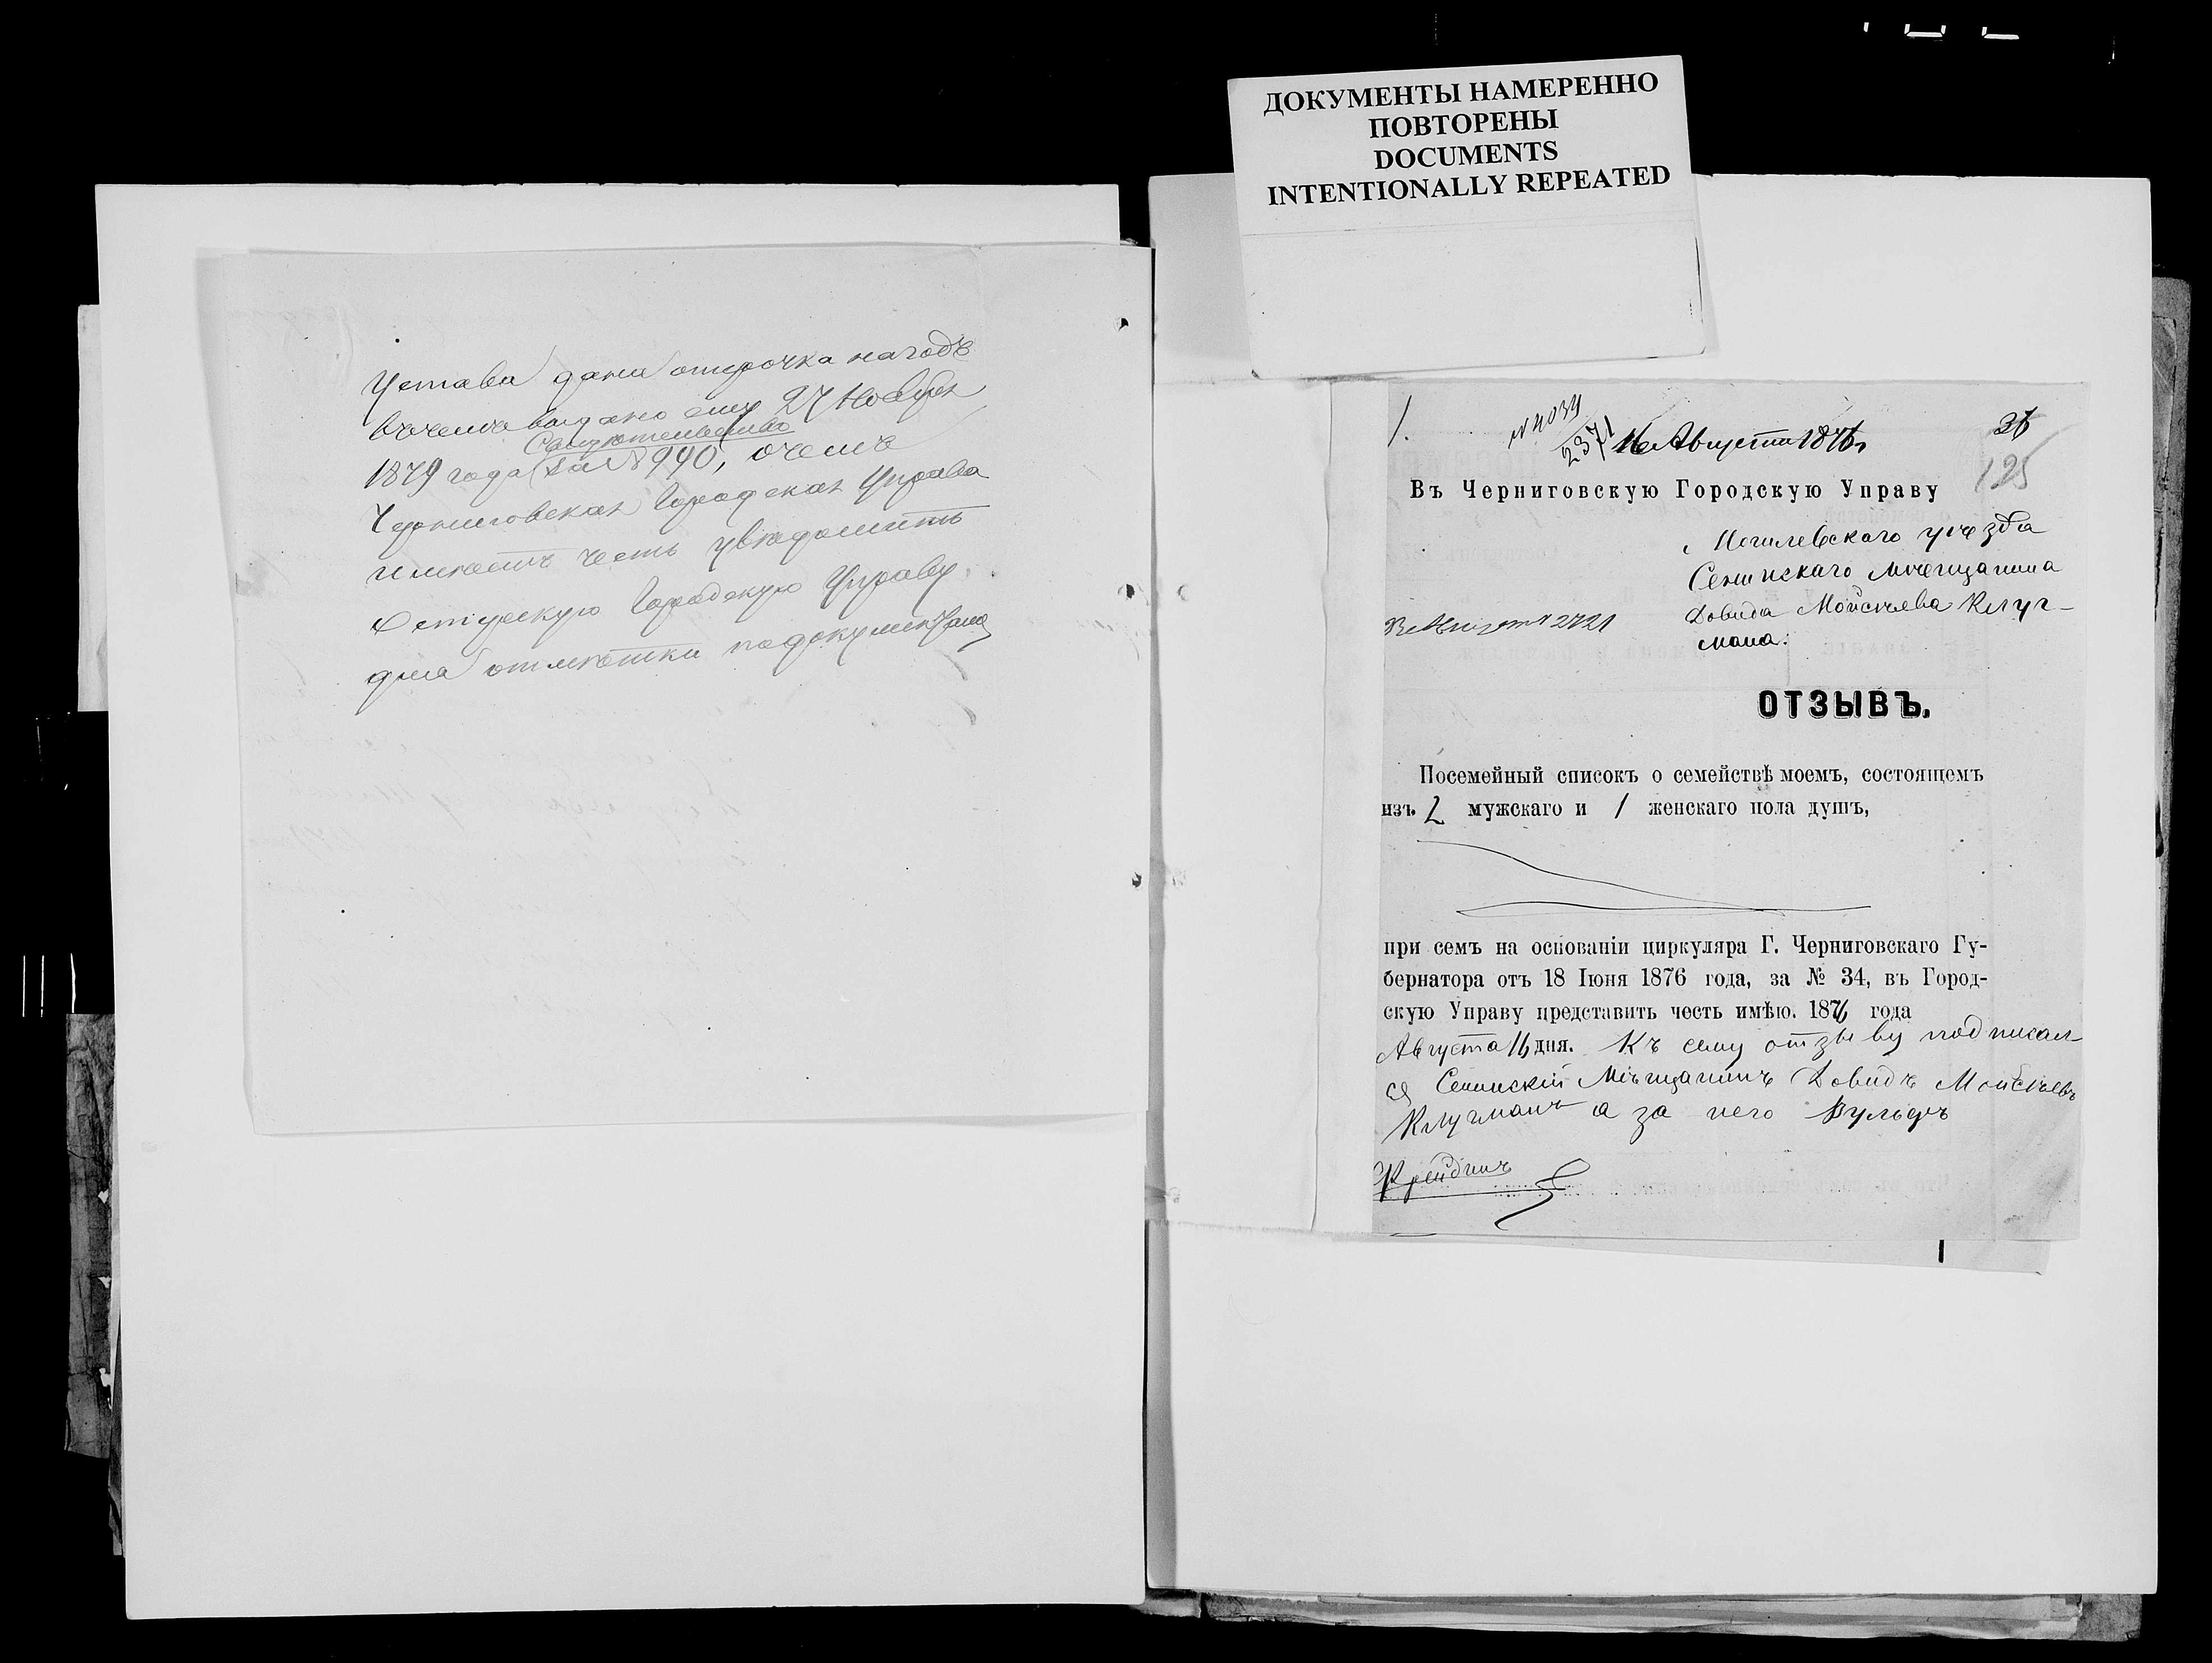 Устава дана отсрочка на годъ
въ чемъ выдано ему 27 Ноября
Свидѣтельство
1879 года за № 990, о чемъ
Черниговская Городская Управа
имѣетъ честь увѣдомить
Городскую Управу
для отмѣтки по документамъ
ДОКУМЕНТЫ НАМЕРЕННО
ПОВТОРЕНЫ
DOCUMENTS
INTENTIONALLY REPEATED
1.
№ 4034
2371
16 Августа 1876 г
36
125
Въ Черниговскую Городскую Управу
Могилевскаго уѣзда
Сеннскаго мѣщанина
Довида Мойсѣева Клуг-
мана:
2421
ОТЗЫВЪ.
Посемейный списокъ о семействѣ моемъ, состоящемъ
изъ 2 мужскаго и 1 женскаго пола душъ,
при семъ на основаніи циркуляра Г. Черниговскаго Гу-
бернатора отъ 18 Іюня 1876 года, за № 34, въ Город-
скую Управу представить честь имѣю. 1876 года
Августа 16 дня. Къ сему отзыву подписал-
ся Сеннскій Мѣщанинъ Довидъ Мойсѣевъ
Клугманъ а за него Вульфъ
Крейдинъ